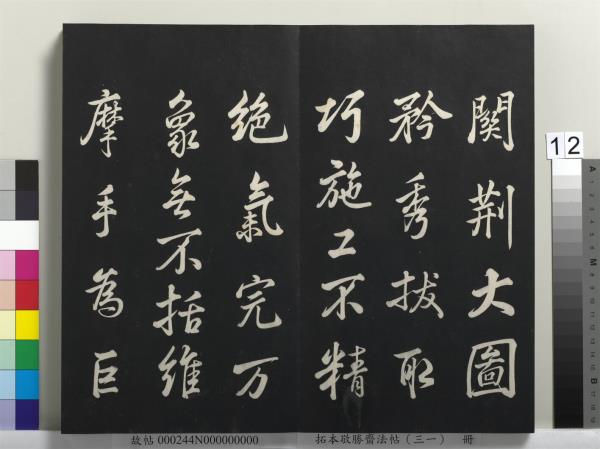 關荆大圖
矜秀拔取
巧施工不精
絶氣完万
象無不括維
摩手為巨
12
A
M
B
故帖 000244N000000000
拓本敬勝齋法帖（三一） 冊